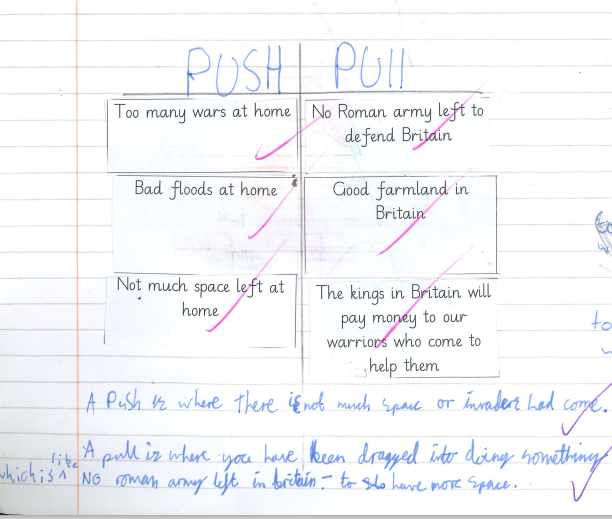 PUSH PUll
Too many wars at home
No Roman army left to
defend Britain
Bad floods at home
Good farmland in
Britain
Not much space left at
home
The kings in Britain will
pay money to our
warriors who come to
help them
A Push is where there is not much space or invaders had come.
A pull is where you have been dragged into doing something
which is like NO roman army left in britain - to have more space.
to